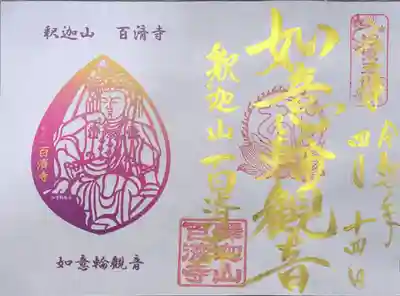 釈迦山　百済寺
百済寺
如意輪観音
令和七年
四月十四日
如意輪観音
釈迦山百済寺
釈迦山
百済寺